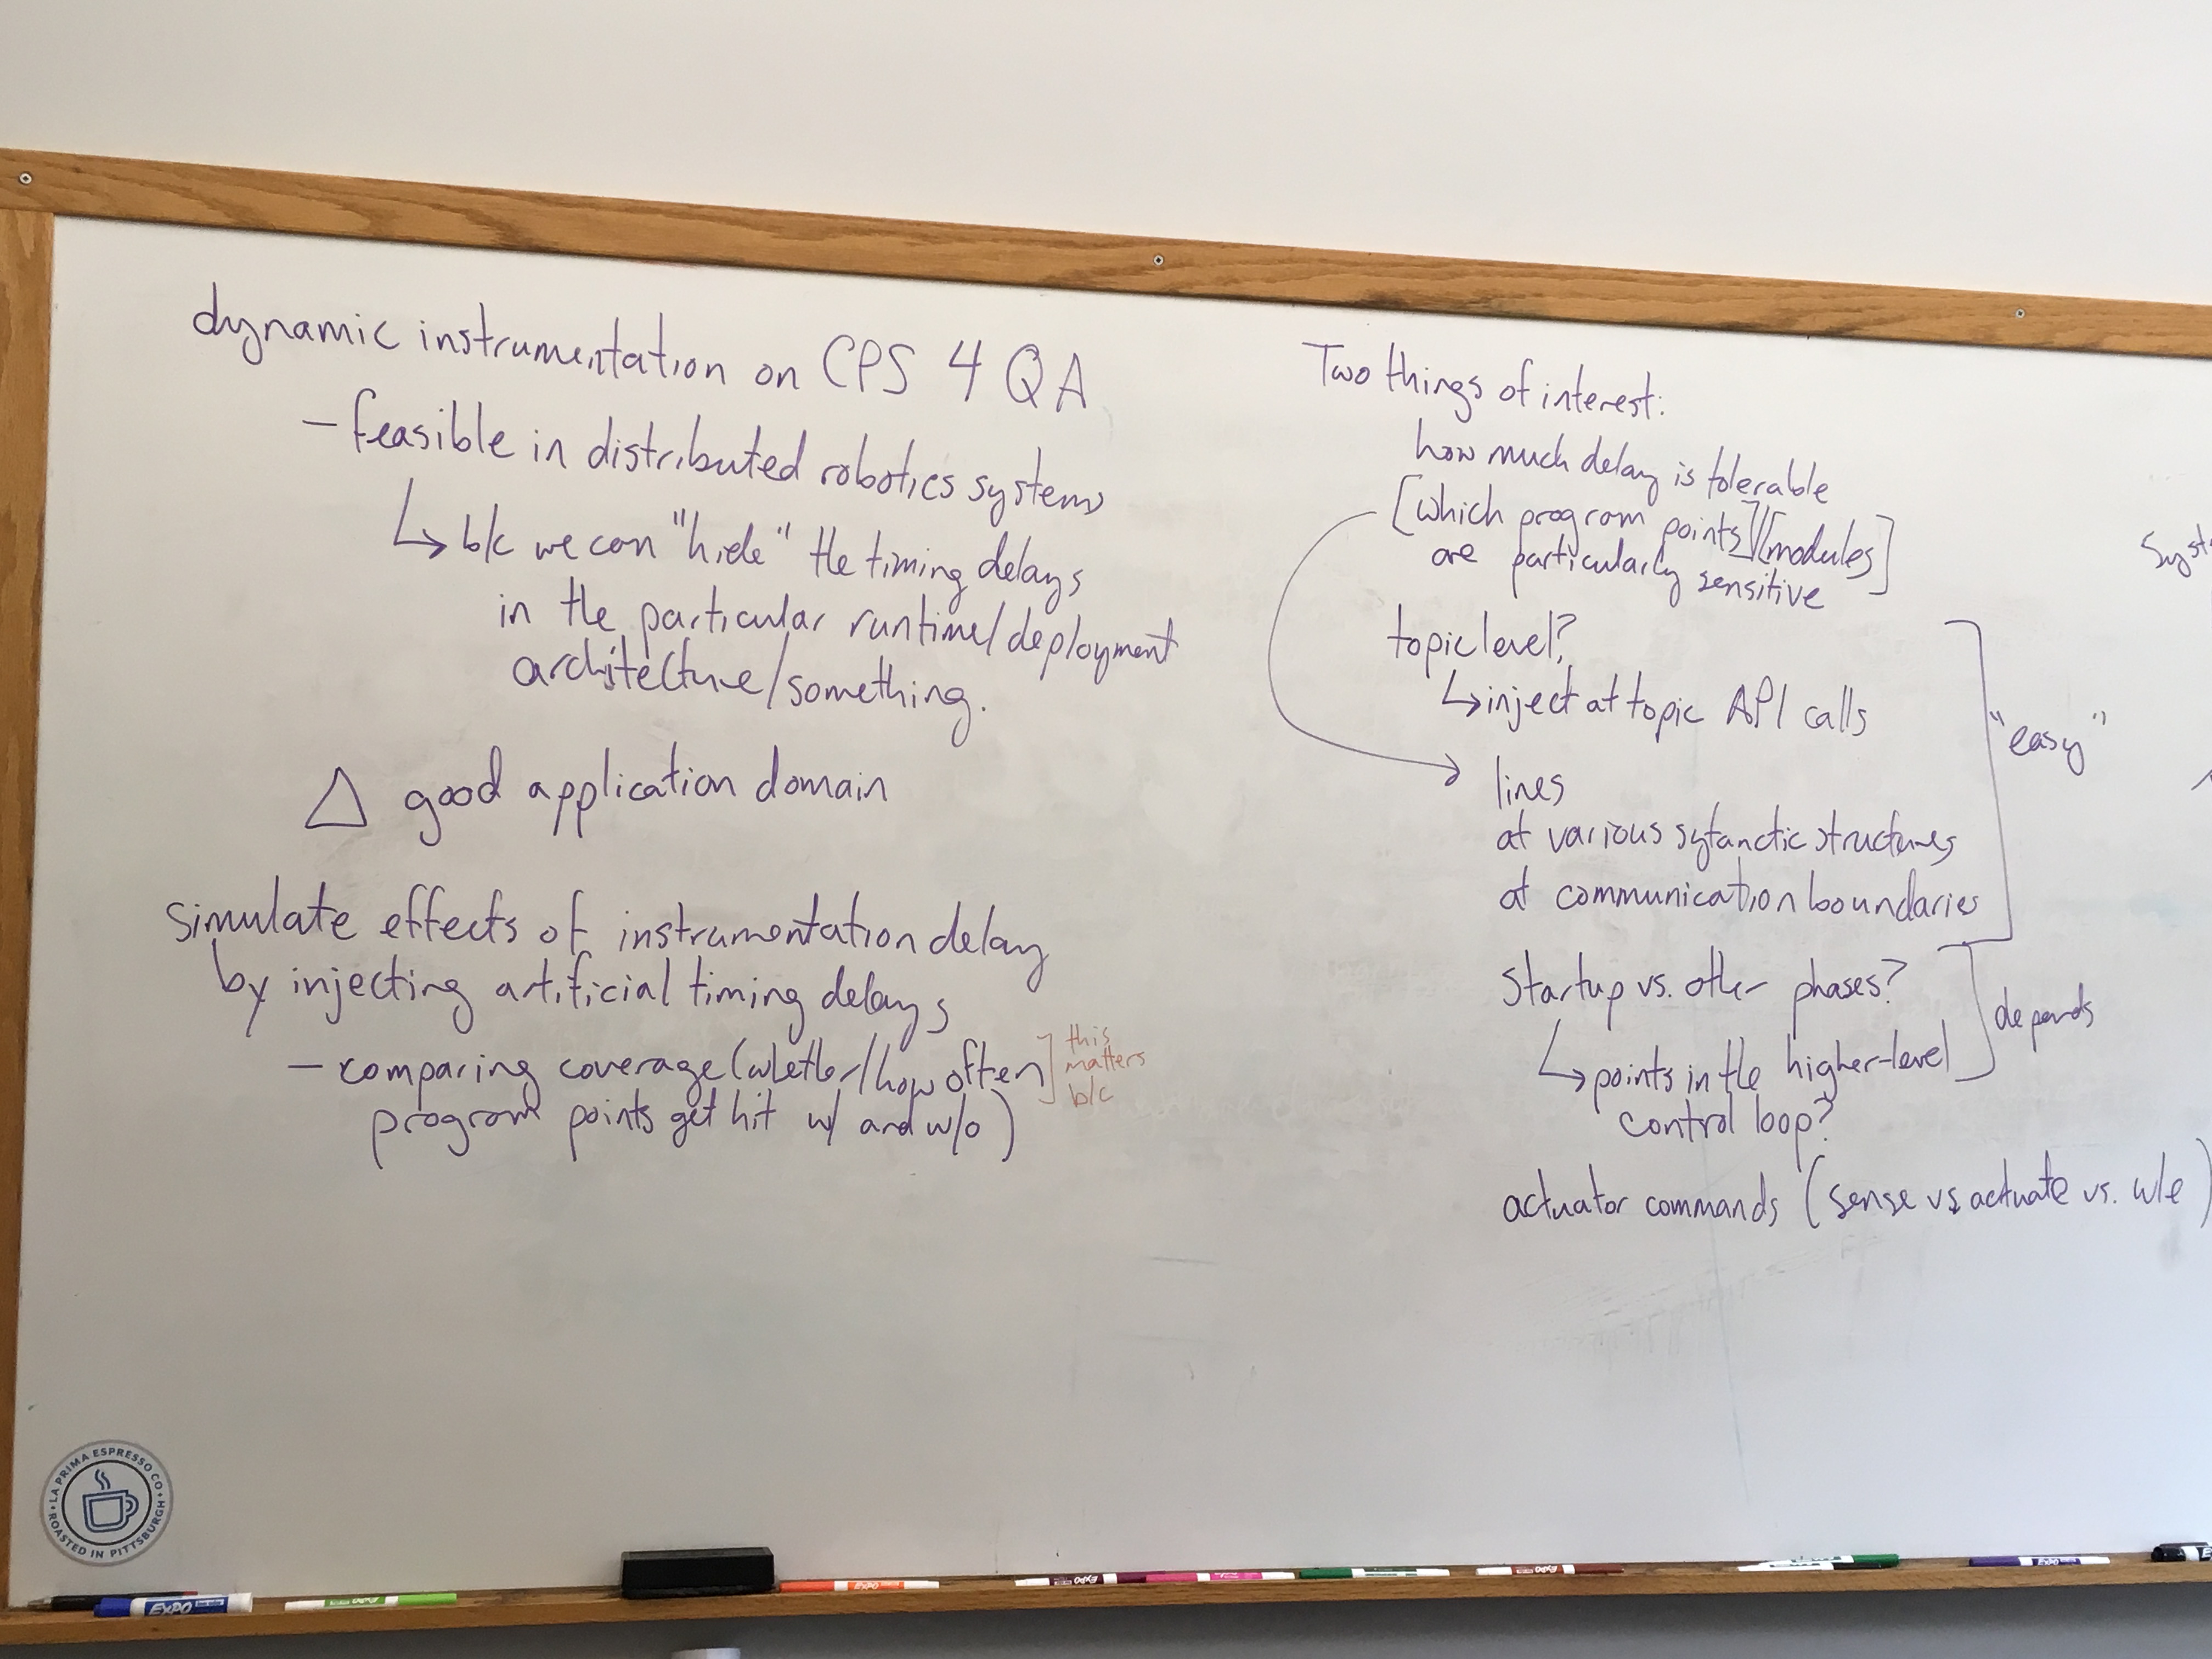 dynamic instrumentation on CPS 4 QA
- feasible in distributed robotics systems
↳ b/c we can "hide" the timing delays
in the particular runtime/deployment
architecture/something.
△ good application domain
simulate effects of instrumentation delay
by injecting artificial timing delays
- comparing coverage (whether/how often
program points get hit w/ and w/o)
this
matters
b/c
Two things of interest:
how much delay is tolerable
[which program points]/[modules]
are particularly sensitive
topic level?
↳ inject at topic API calls
lines
at various sytanctic structures
at communication boundaries
"easy"
Startup vs. other phases?
↳ points in the higher-level
control loop?
depends
actuator commands (sense vs actuate vs. w/e)
Syst
LA PRIMA ESPRESSO CO.
ROASTED IN PITTSBURGH
EXPO